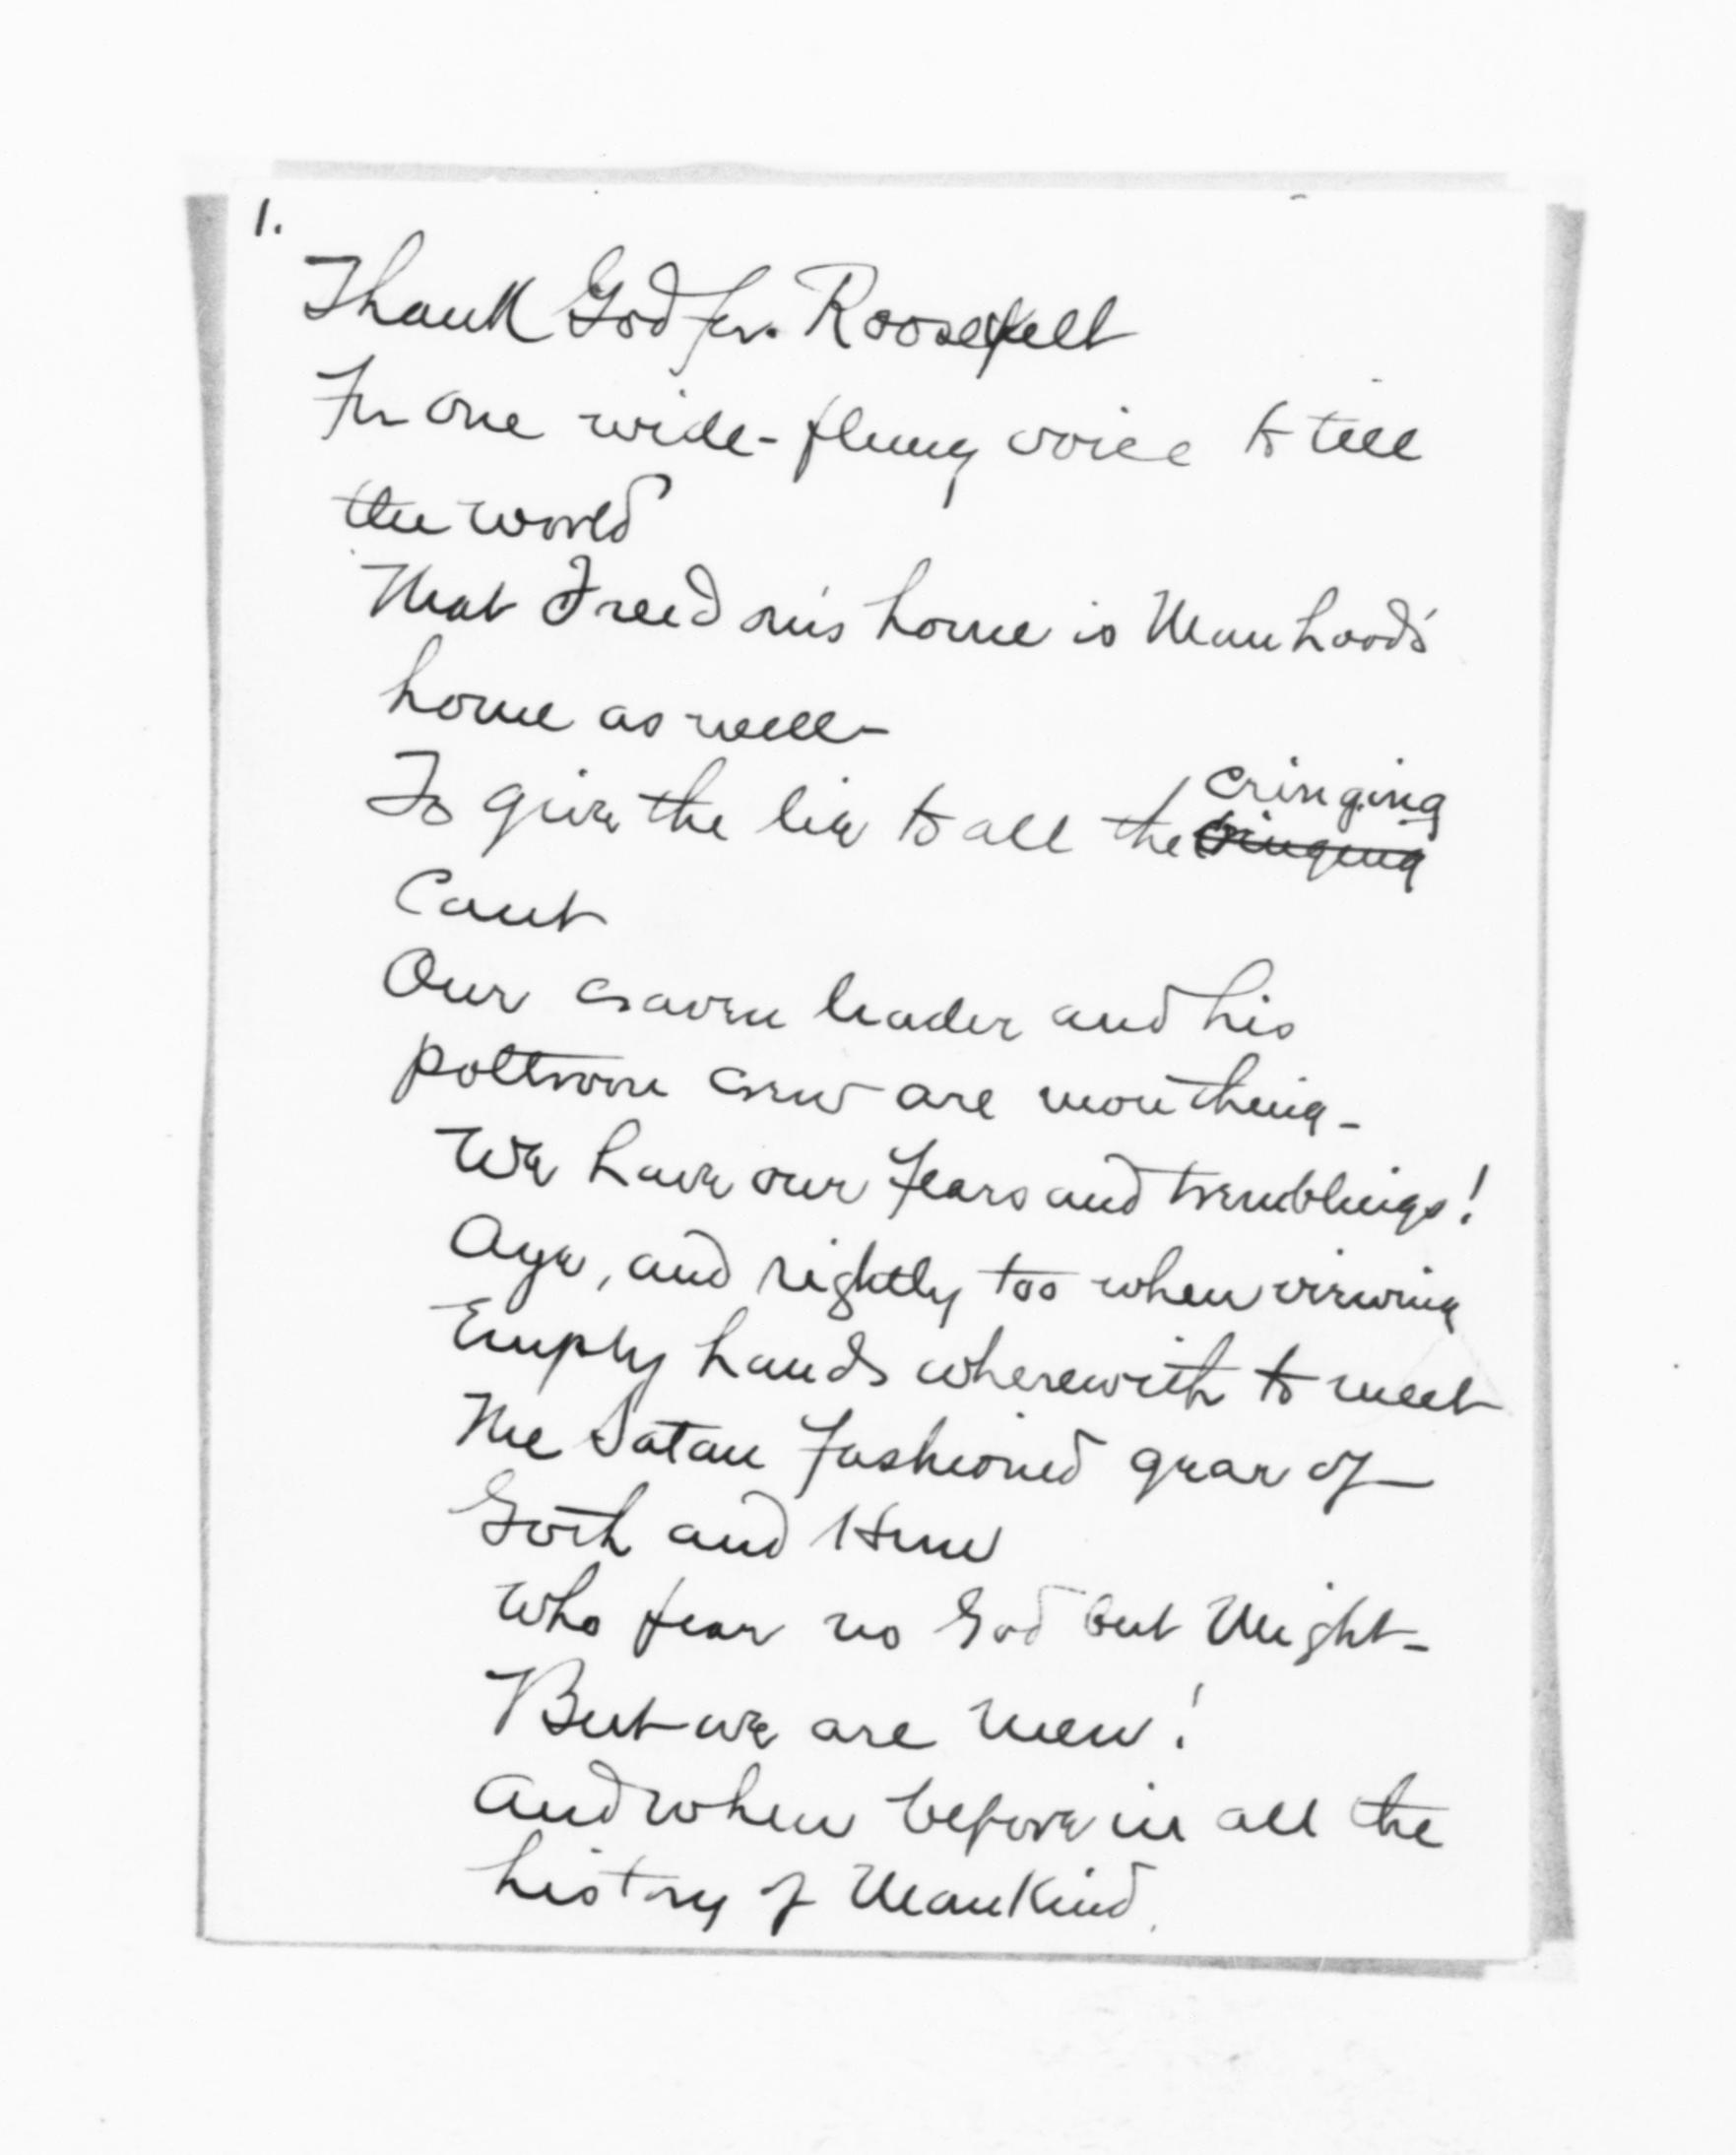 1.
Thank God for Roosevelt
For one wide-flung voice to tell
the world
That Freedom's home is Manhood's
home as well-
To give the lie to all the cringing
Cant
Our craven leader and his
poltroon crew are mouthing-
We have our Fears and tremblings!
Aye, and rightly too when viewing
Empty hands wherewith to meet
The Satan fashioned gear of
Goth and Hun
Who fear no God but Might-
But we are Men!
And when before in all the
history of Mankind.